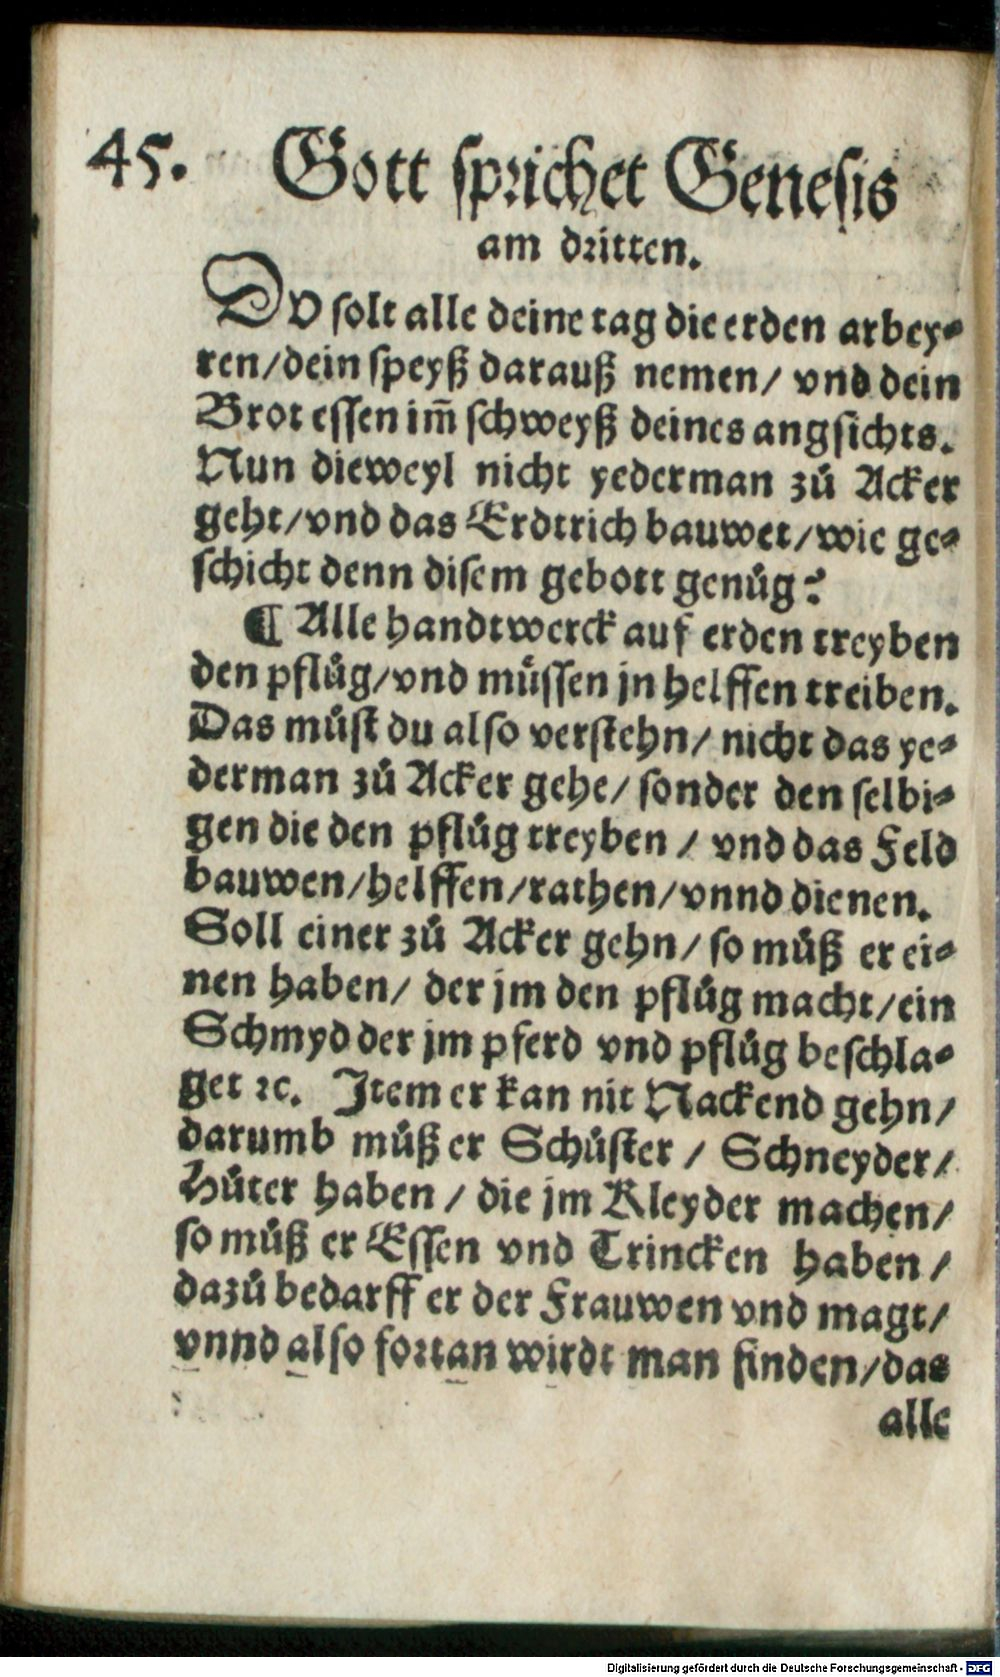 45. Gott sprichet Genesis
am dritten.
DV solt alle deine tag die erden arbey⸗
ten/dein speyß darauß nemen/ vnd dein
Brot essen im̃ schweyß deines angsichts.
Nun dieweyl nicht yederman zuͦ Acker
geht/vnd das Erdtrich bauwet/wie ge⸗
schicht denn disem gebott genuͦg?
¶ Alle handtwerck auf erden treyben
den pfluͦg/vnd muͤssen jn helffen treiben.
Das muͦst du also verstehn/ nicht das ye⸗
derman zuͦ Acker gehe/ sonder den selbi⸗
gen die den pfluͦg treyben / vnd das Feld
bauwen/helffen/rathen/vnnd dienen.
Soll einer zuͦ Acker gehn/ so muͦß er ei⸗
nen haben/ der jm den pfluͦg macht/ein
Schmyd der jm pferd vnd pfluͦg beschla⸗
get ꝛc. Item er kan nit Nackend gehn/
darumb muͦß er Schuͦster / Schneyder/
Huͦter haben / die jm Kleyder machen/
so muͦß er Essen vnd Trincken haben /
dazuͦ bedarff er der Frauwen vnd magt/
vnnd also fortan wirdt man finden/das
alle
Digitalisierung gefördert durch die Deutsche Forschungsgemeinschaft - DFG